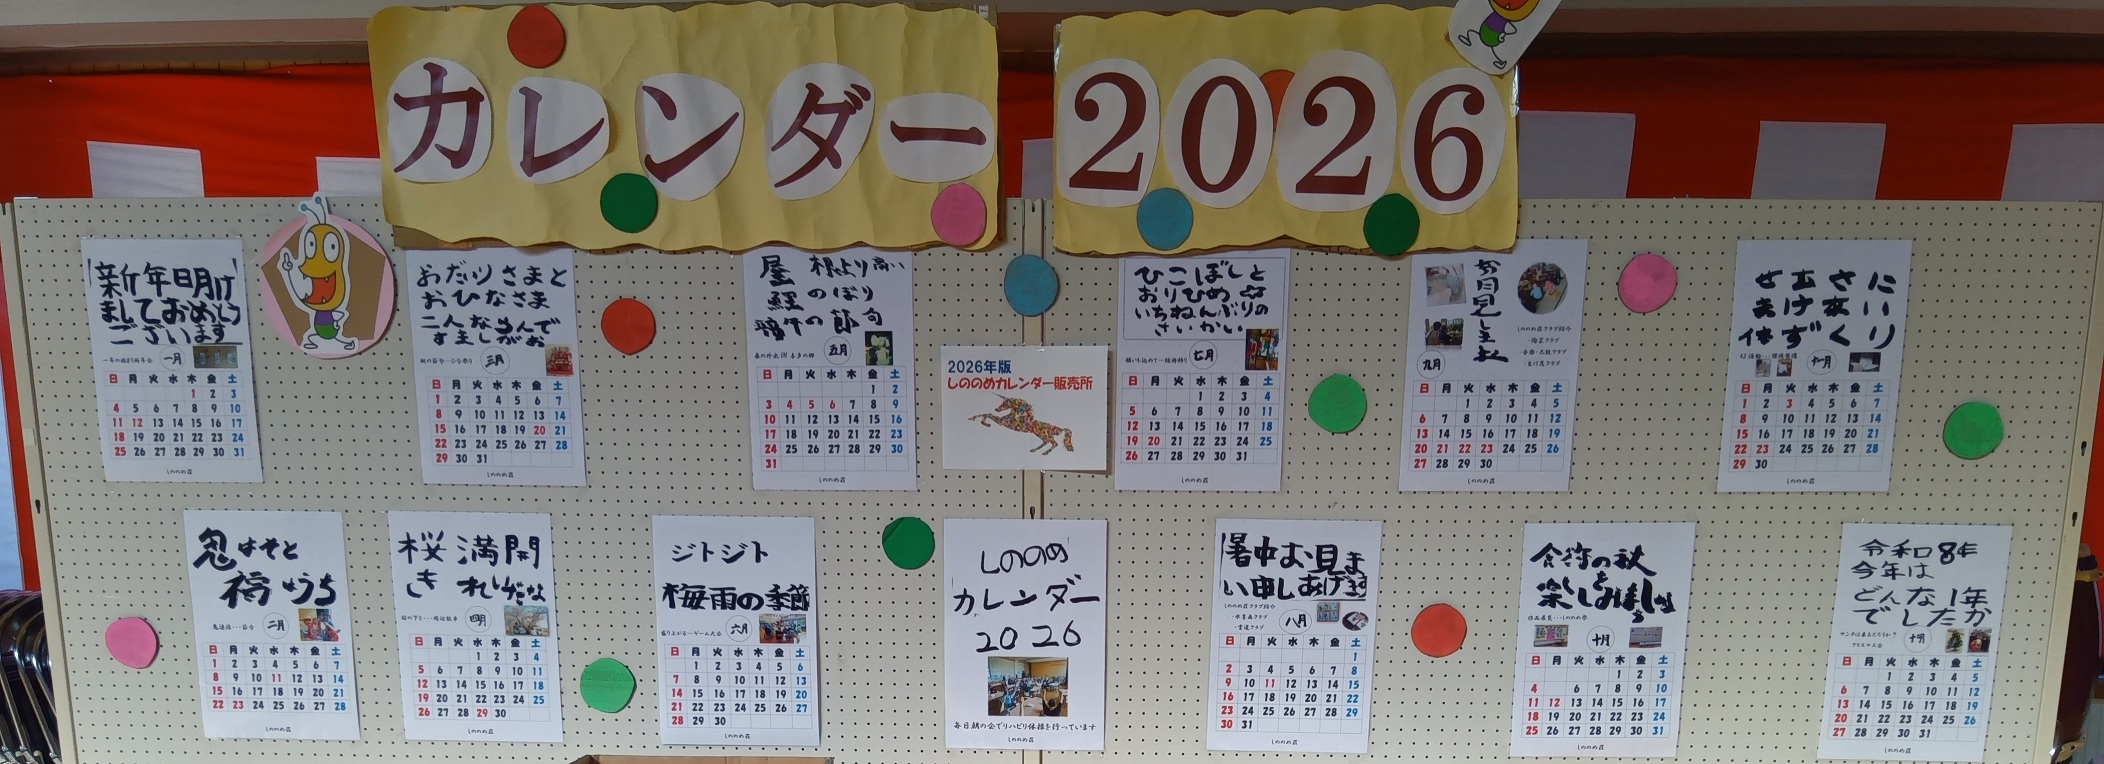 カレンダー 2026
新年明け
ましておめでとう
ございます
一月
日 月 火 水 木 金 土
1 2 3
4 5 6 7 8 9 10
11 12 13 14 15 16 17
18 19 20 21 22 23 24
25 26 27 28 29 30 31
しののめ荘
おだいりさまと
おひなさま
二人ならんで
すましがお
三月
日 月 火 水 木 金 土
1 2 3 4 5 6 7
8 9 10 11 12 13 14
15 16 17 18 19 20 21
22 23 24 25 26 27 28
29 30 31
しののめ荘
屋根より高い
鯉のぼり
端午の節句
五月
日 月 火 水 木 金 土
1 2
3 4 5 6 7 8 9
10 11 12 13 14 15 16
17 18 19 20 21 22 23
24 25 26 27 28 29 30
31
しののめ荘
2026年版
しののめカレンダー販売所
ひこぼしと
おりひめ
いちねんぶりの
さいかい
七月
日 月 火 水 木 金 土
1 2 3 4
5 6 7 8 9 10 11
12 13 14 15 16 17 18
19 20 21 22 23 24 25
26 27 28 29 30 31
しののめ荘
お月見
しののめ荘クラブ紹介
・陶芸クラブ
・生け花クラブ
九月
日 月 火 水 木 金 土
1 2 3 4 5
6 7 8 9 10 11 12
13 14 15 16 17 18 19
20 21 22 23 24 25 26
27 28 29 30
しののめ荘
十一月
日 月 火 水 木 金 土
1 2 3 4 5 6 7
8 9 10 11 12 13 14
15 16 17 18 19 20 21
22 23 24 25 26 27 28
29 30
しののめ荘
鬼はそと
福はうち
二月
日 月 火 水 木 金 土
1 2 3 4 5 6 7
8 9 10 11 12 13 14
15 16 17 18 19 20 21
22 23 24 25 26 27 28
しののめ荘
桜満開
きれいだな
四月
日 月 火 水 木 金 土
1 2 3 4
5 6 7 8 9 10 11
12 13 14 15 16 17 18
19 20 21 22 23 24 25
26 27 28 29 30
しののめ荘
ジトジト
梅雨の季節
盛り上がる・・・ゲーム大会
六月
日 月 火 水 木 金 土
1 2 3 4 5 6
7 8 9 10 11 12 13
14 15 16 17 18 19 20
21 22 23 24 25 26 27
28 29 30
しののめ荘
しののめ
カレンダー
2026
毎日朝の会でリハビリ体操を行っています
しののめ荘
暑中お見ま
い申しあげます
しののめ荘クラブ紹介
・書道クラブ
八月
日 月 火 水 木 金 土
1
2 3 4 5 6 7 8
9 10 11 12 13 14 15
16 17 18 19 20 21 22
23 24 25 26 27 28 29
30 31
しののめ荘
の秋
十月
日 月 火 水 木 金 土
1 2 3
4 6 7 8 9 10
11 12 13 14 15 16 17
18 19 20 21 22 23 24
25 26 27 28 29 30 31
しののめ荘
令和8年
今年は
どんな1年
でしたか
サンタは来るだろうか?
クリスマス会
日 月 火 水 木 金 土
1 2 3 4 5
6 7 8 9 10 11 12
13 14 15 16 17 18 19
20 21 22 23 24 25 26
27 28 29 30 31
しののめ荘